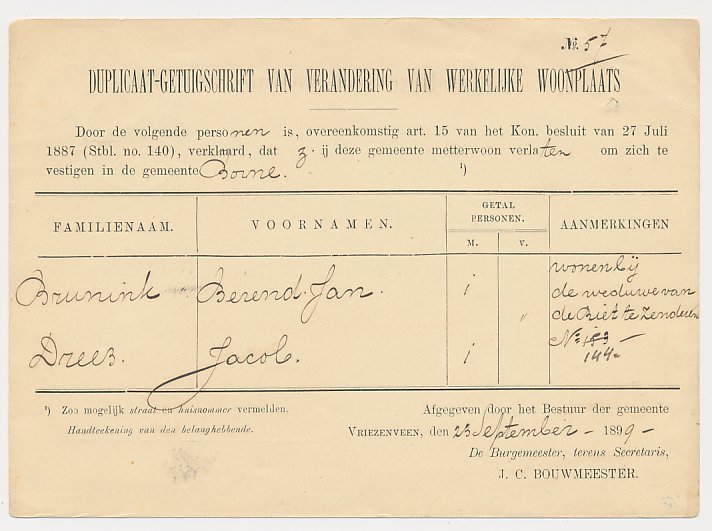 No. 57
DUPLICAAT-GETUIGSCHRIFT VAN VERANDERING VAN WERKELIJKE WOONPLAATS
Door de volgende personen is, overeenkomstig art. 15 van het Kon. besluit van 27 Juli
1887 (Stbl. no. 140), verklaard, dat z. ij deze gemeente metterwoon verlaten om zich te
vestigen in de gemeente Borne. ¹)
FAMILIENAAM. VOORNAMEN. GETAL PERSONEN. AANMERKINGEN
M. V.
Brunink " Berend Jan. 1 wonen bij
de weduwe van
" de Riet te Zenderen
Drees. Jacob. 1 No 153 -
144 -
¹) Zoo mogelijk straat en huisnommer vermelden. Afgegeven door het Bestuur der gemeente
Handteekening van den belanghebbende. VRIEZENVEEN, den 23 September - 1899 -
De Burgemeester, tevens Secretaris,
J. C. BOUWMEESTER.